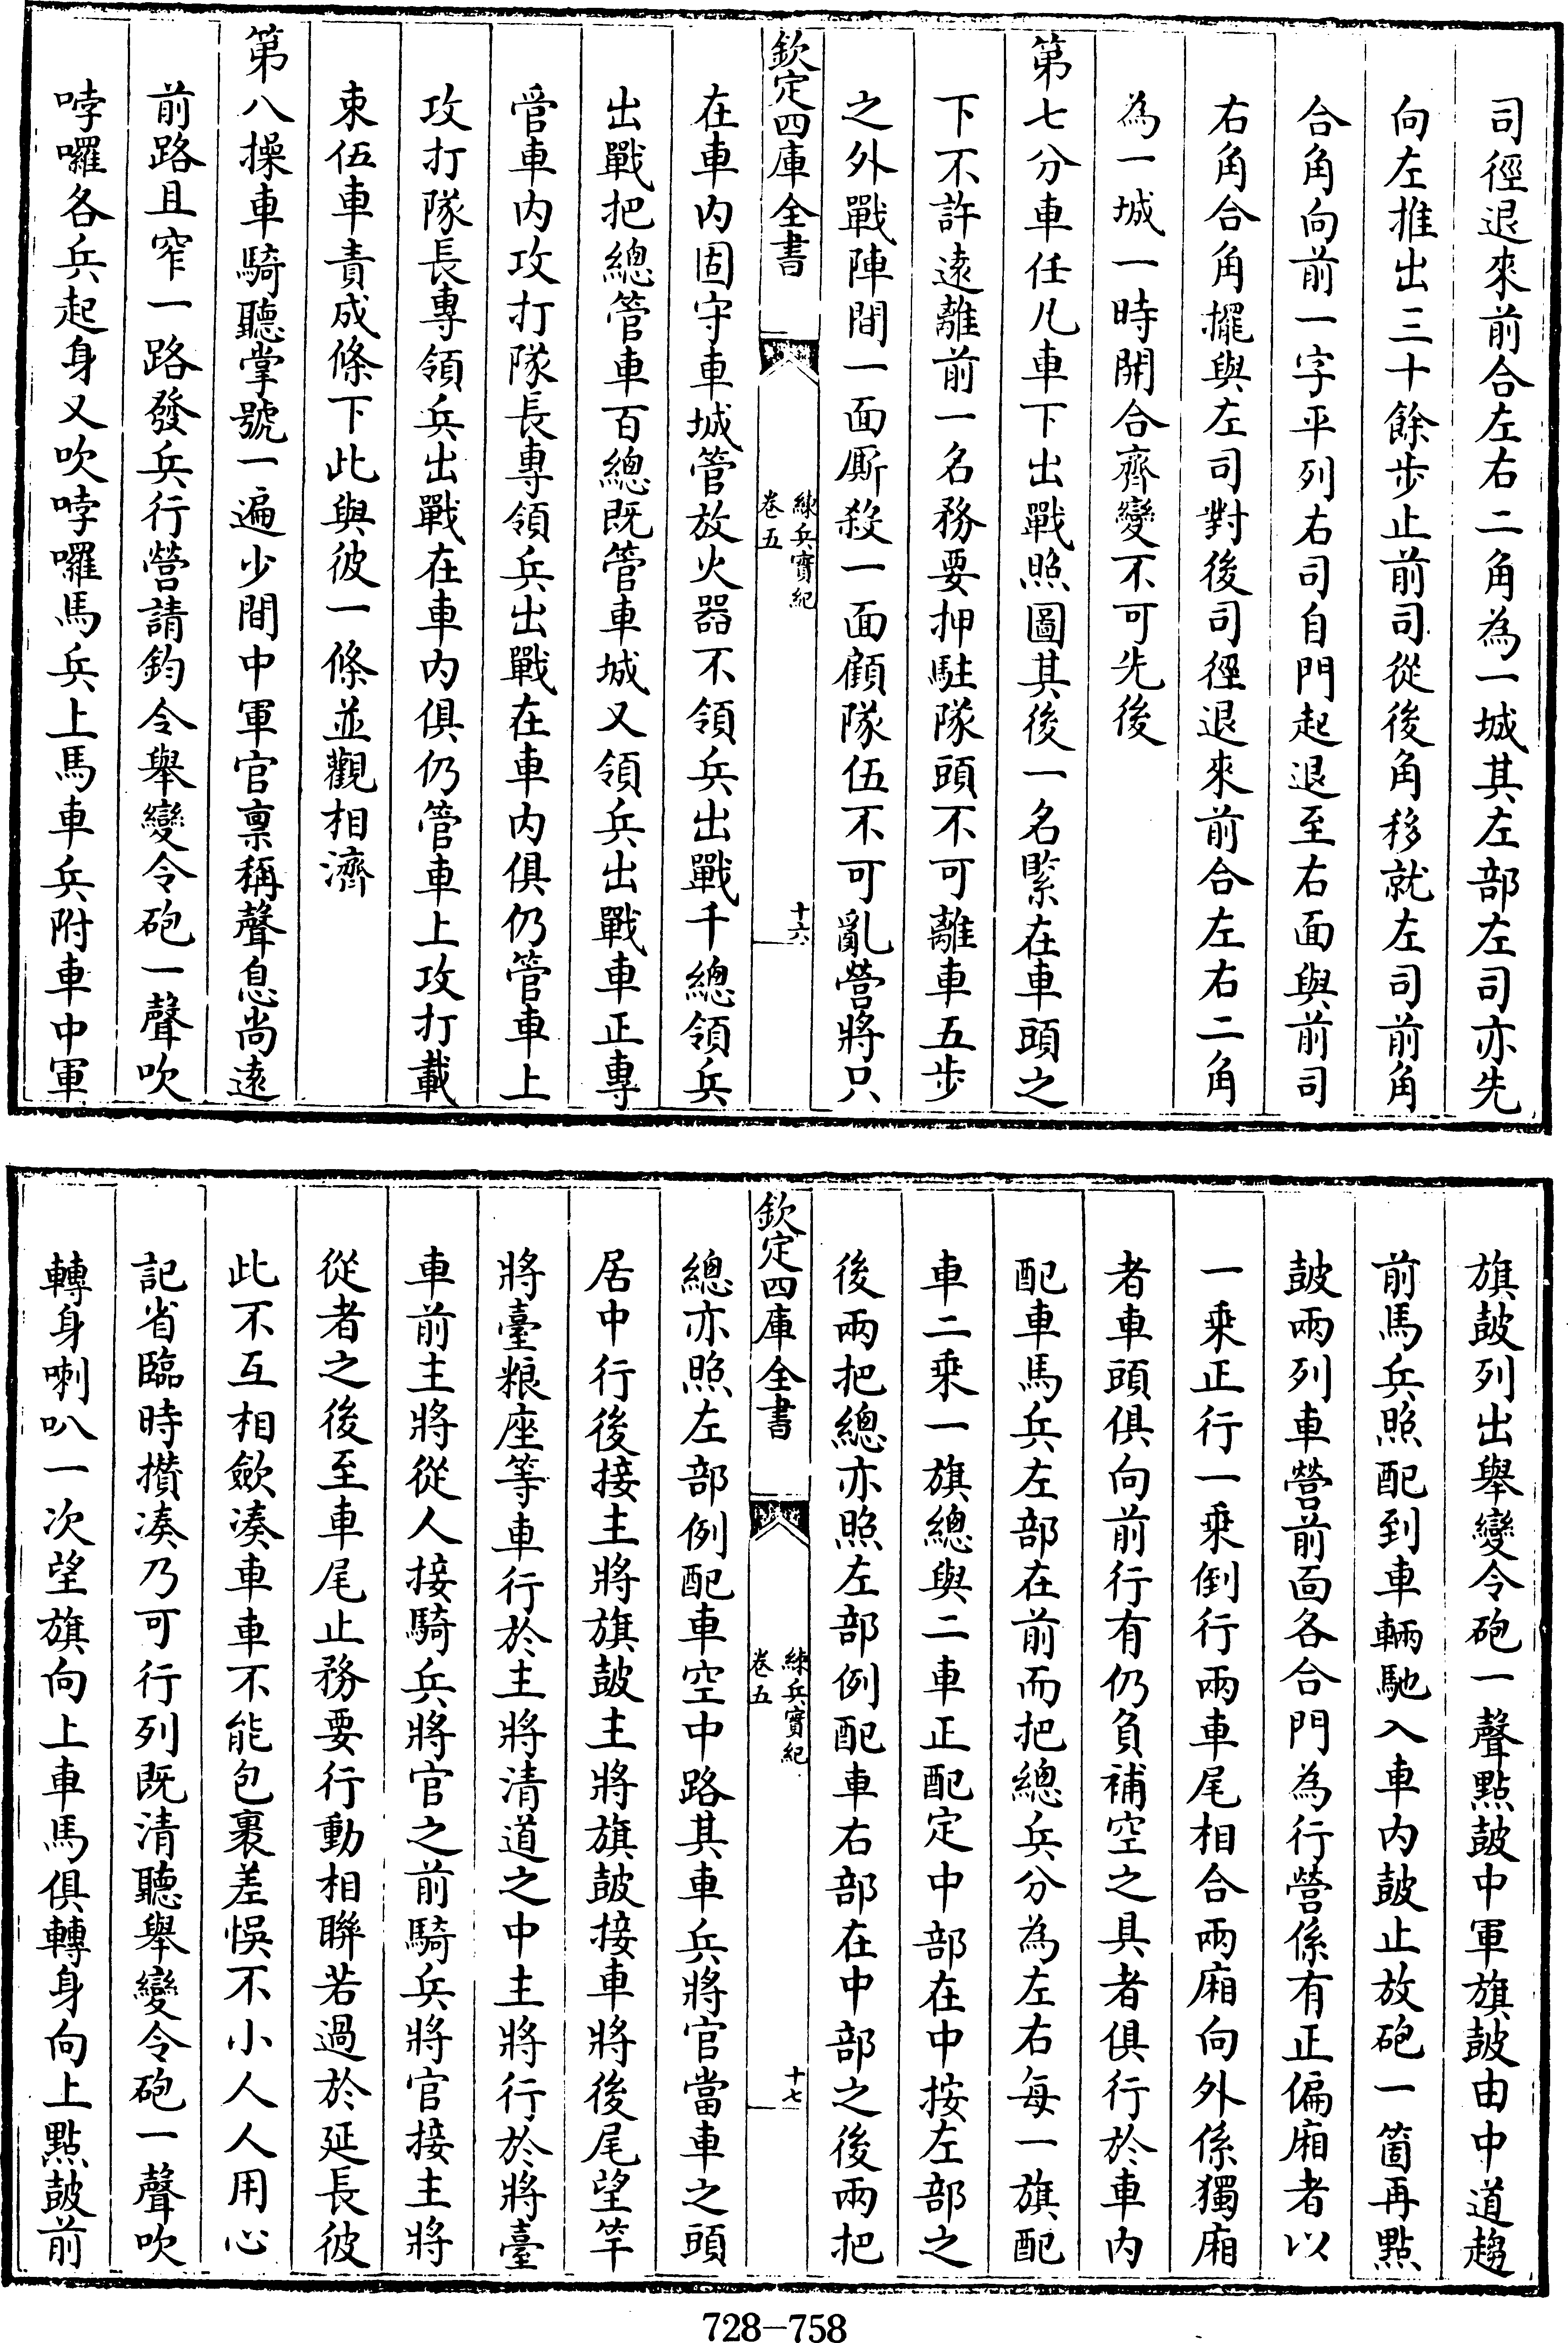 司徑退來前合左右二角為一城其左部左司亦先
向左推出三十餘步止前司從後角移就左司前角
合角向前一字平列右司自門起退至右面與前司
右角合角擺與左司對後司徑退來前合左右二角
為一城一時開合齊變不可先後
第七分車任凡車下出戰照圖其後一名緊在車頭之
下不許遠離前一名務要押駐隊頭不可離車五步
之外戰陣間一面厮殺一面顧隊伍不可亂營將只
欽定四庫全書
練兵實紀
卷五
十六
在車内固守車城管放火器不領兵出戰千總領兵
出戰把總管車百總既管車城又領兵出戰車正專
管車内攻打隊長專領兵出戰在車内俱仍管車上
攻打隊長專領兵出戰在車内俱仍管車上攻打載
束伍車責成條下此與彼一條並觀相濟
第八操車騎聽掌號一遍少間中軍官禀稱聲息尚遠
前路且窄一路發兵行營請鈞令舉變令砲一聲吹
哱囉各兵起身又吹哱囉馬兵上馬車兵附車中軍
旗鼓列出舉變令砲一聲點鼓中軍旗鼓由中道趨
前馬兵照配到車輛馳入車内鼓止放砲一箇再點
鼓兩列車營前面各合門為行營係有正偏廂者以
一乗正行一乗倒行兩車尾相合兩廂向外係獨廂
者車頭俱向前行有仍負補空之具者俱行於車内
配車馬兵左部在前而把總兵分為左右每一旗配
車二乗一旗總與二車正配定中部在中按左部之
後兩把總亦照左部例配車右部在中部之後兩把
欽定四庫全書
練兵實紀
卷五
十七
總亦照左部例配車空中路其車兵將官當車之頭
居中行後接主將旗鼓主將旗鼓接車將後尾望竿
將臺粮座等車行於主將清道之中主將行於將臺
車前主將從人接騎兵將官之前騎兵將官接主將
從者之後至車尾止務要行動相聯若過於延長彼
此不互相歛湊車車不能包裹差悞不小人人用心
記省臨時攢湊乃可行列既清聽舉變令砲一聲吹
轉身喇叭一次望旗向上車馬俱轉身向上點鼓前
728-758